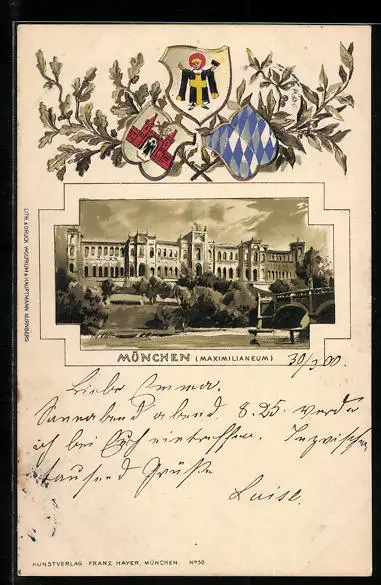 LITH. & DRUCK WOLFRUM & HAUPTMANN NÜRNBERG
MÜNCHEN (MAXIMILIANEUM)
30/ 00.
Liebe Emma.
Sonnabend abend 8.25. werde
ich bei Euch eintreffen. Inzwischen
tausend Grüße
Luise.
KUNSTVERLAG FRANZ HAYER, MÜNCHEN. No 50